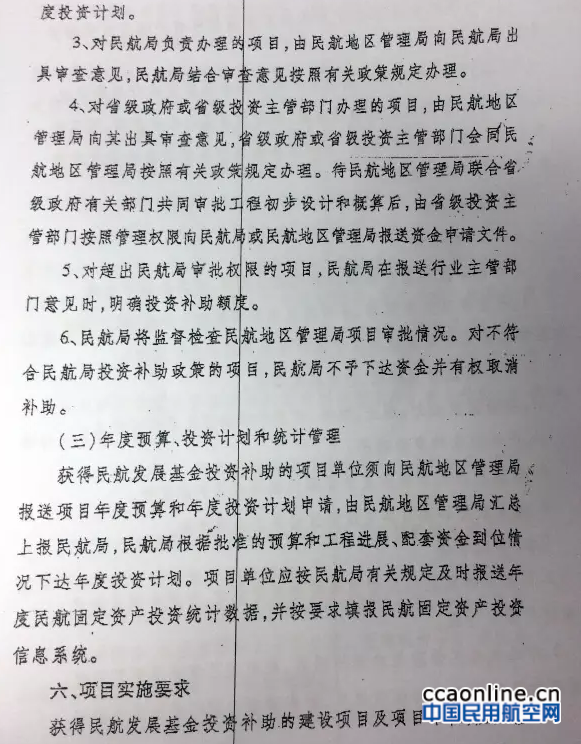 度投资计划。
3、对民航局负责办理的项目,由民航地区管理局向民航局出
具审查意见,民航局结合审查意见按照有关政策规定办理。
4、对省级政府或省级投资主管部门办理的项目,由民航地区
管理局向其出具审查意见,省级政府或省级投资主管部门会同民
航地区管理局按照有关政策规定办理。待民航地区管理局联合省
级政府有关部门共同审批工程初步设计和概算后,由省级投资主
管部门按照管理权限向民航局或民航地区管理局报送资金申请文件。
5、对超出民航局审批权限的项目,民航局在报送行业主管部
门意见时,明确投资补助额度。
6、民航局将监督检查民航地区管理局项目审批情况。对不符
合民航局投资补助政策的项目,民航局不予下达资金并有权取消
补助。
(三)年度预算、投资计划和统计管理
获得民航发展基金投资补助的项目单位须向民航地区管理局
报送项目年度预算和年度投资计划申请,由民航地区管理局汇总
上报民航局,民航局根据批准的预算和工程进展、配套资金到位情
况下达年度投资计划。项目单位应按民航局有关规定及时报送年
度民航固定资产投资统计数据,并按要求填报民航固定资产投资
信息系统。
六、项目实施要求
获得民航发展基金投资补助的建设项目及项目
ccaonline.cn
中国民用航空网